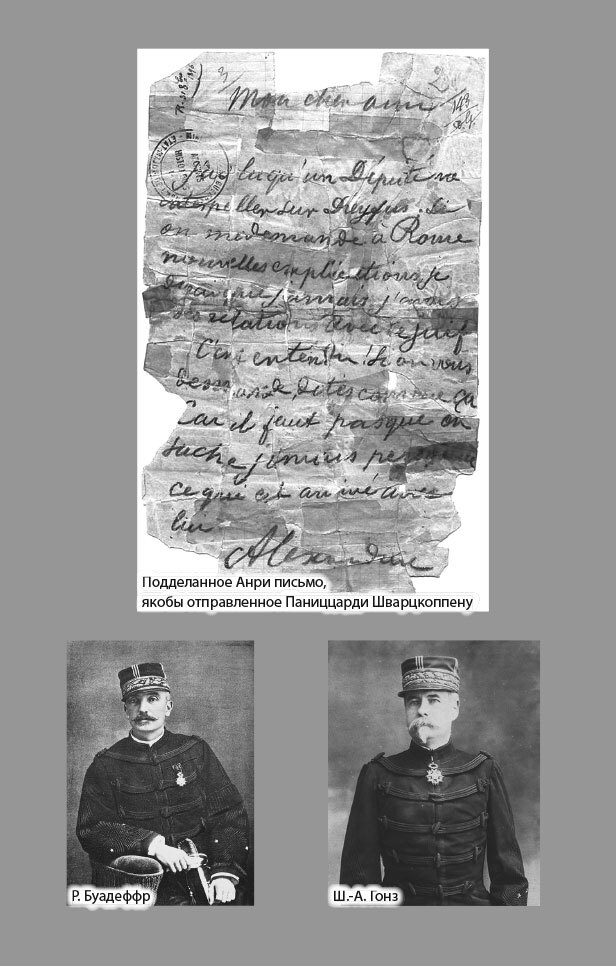 Mon cher ami
J'ai lu qu'un Député va
interpeller sur Dreyfus. Si
on me demande à Rome
nouvelles explications je
dirai que jamais j'avais
des relations avec ce juif
C'est entendu. Si on vous
demande, dites comme ça
Car il faut pas que on
sache jamais personne
ce qui est arrivé avec
lui
Alexandrine
Подделанное Анри письмо,
якобы отправленное Паниццарди Шварцкоппену
Р. Буадеффр
Ш.-А. Гонз